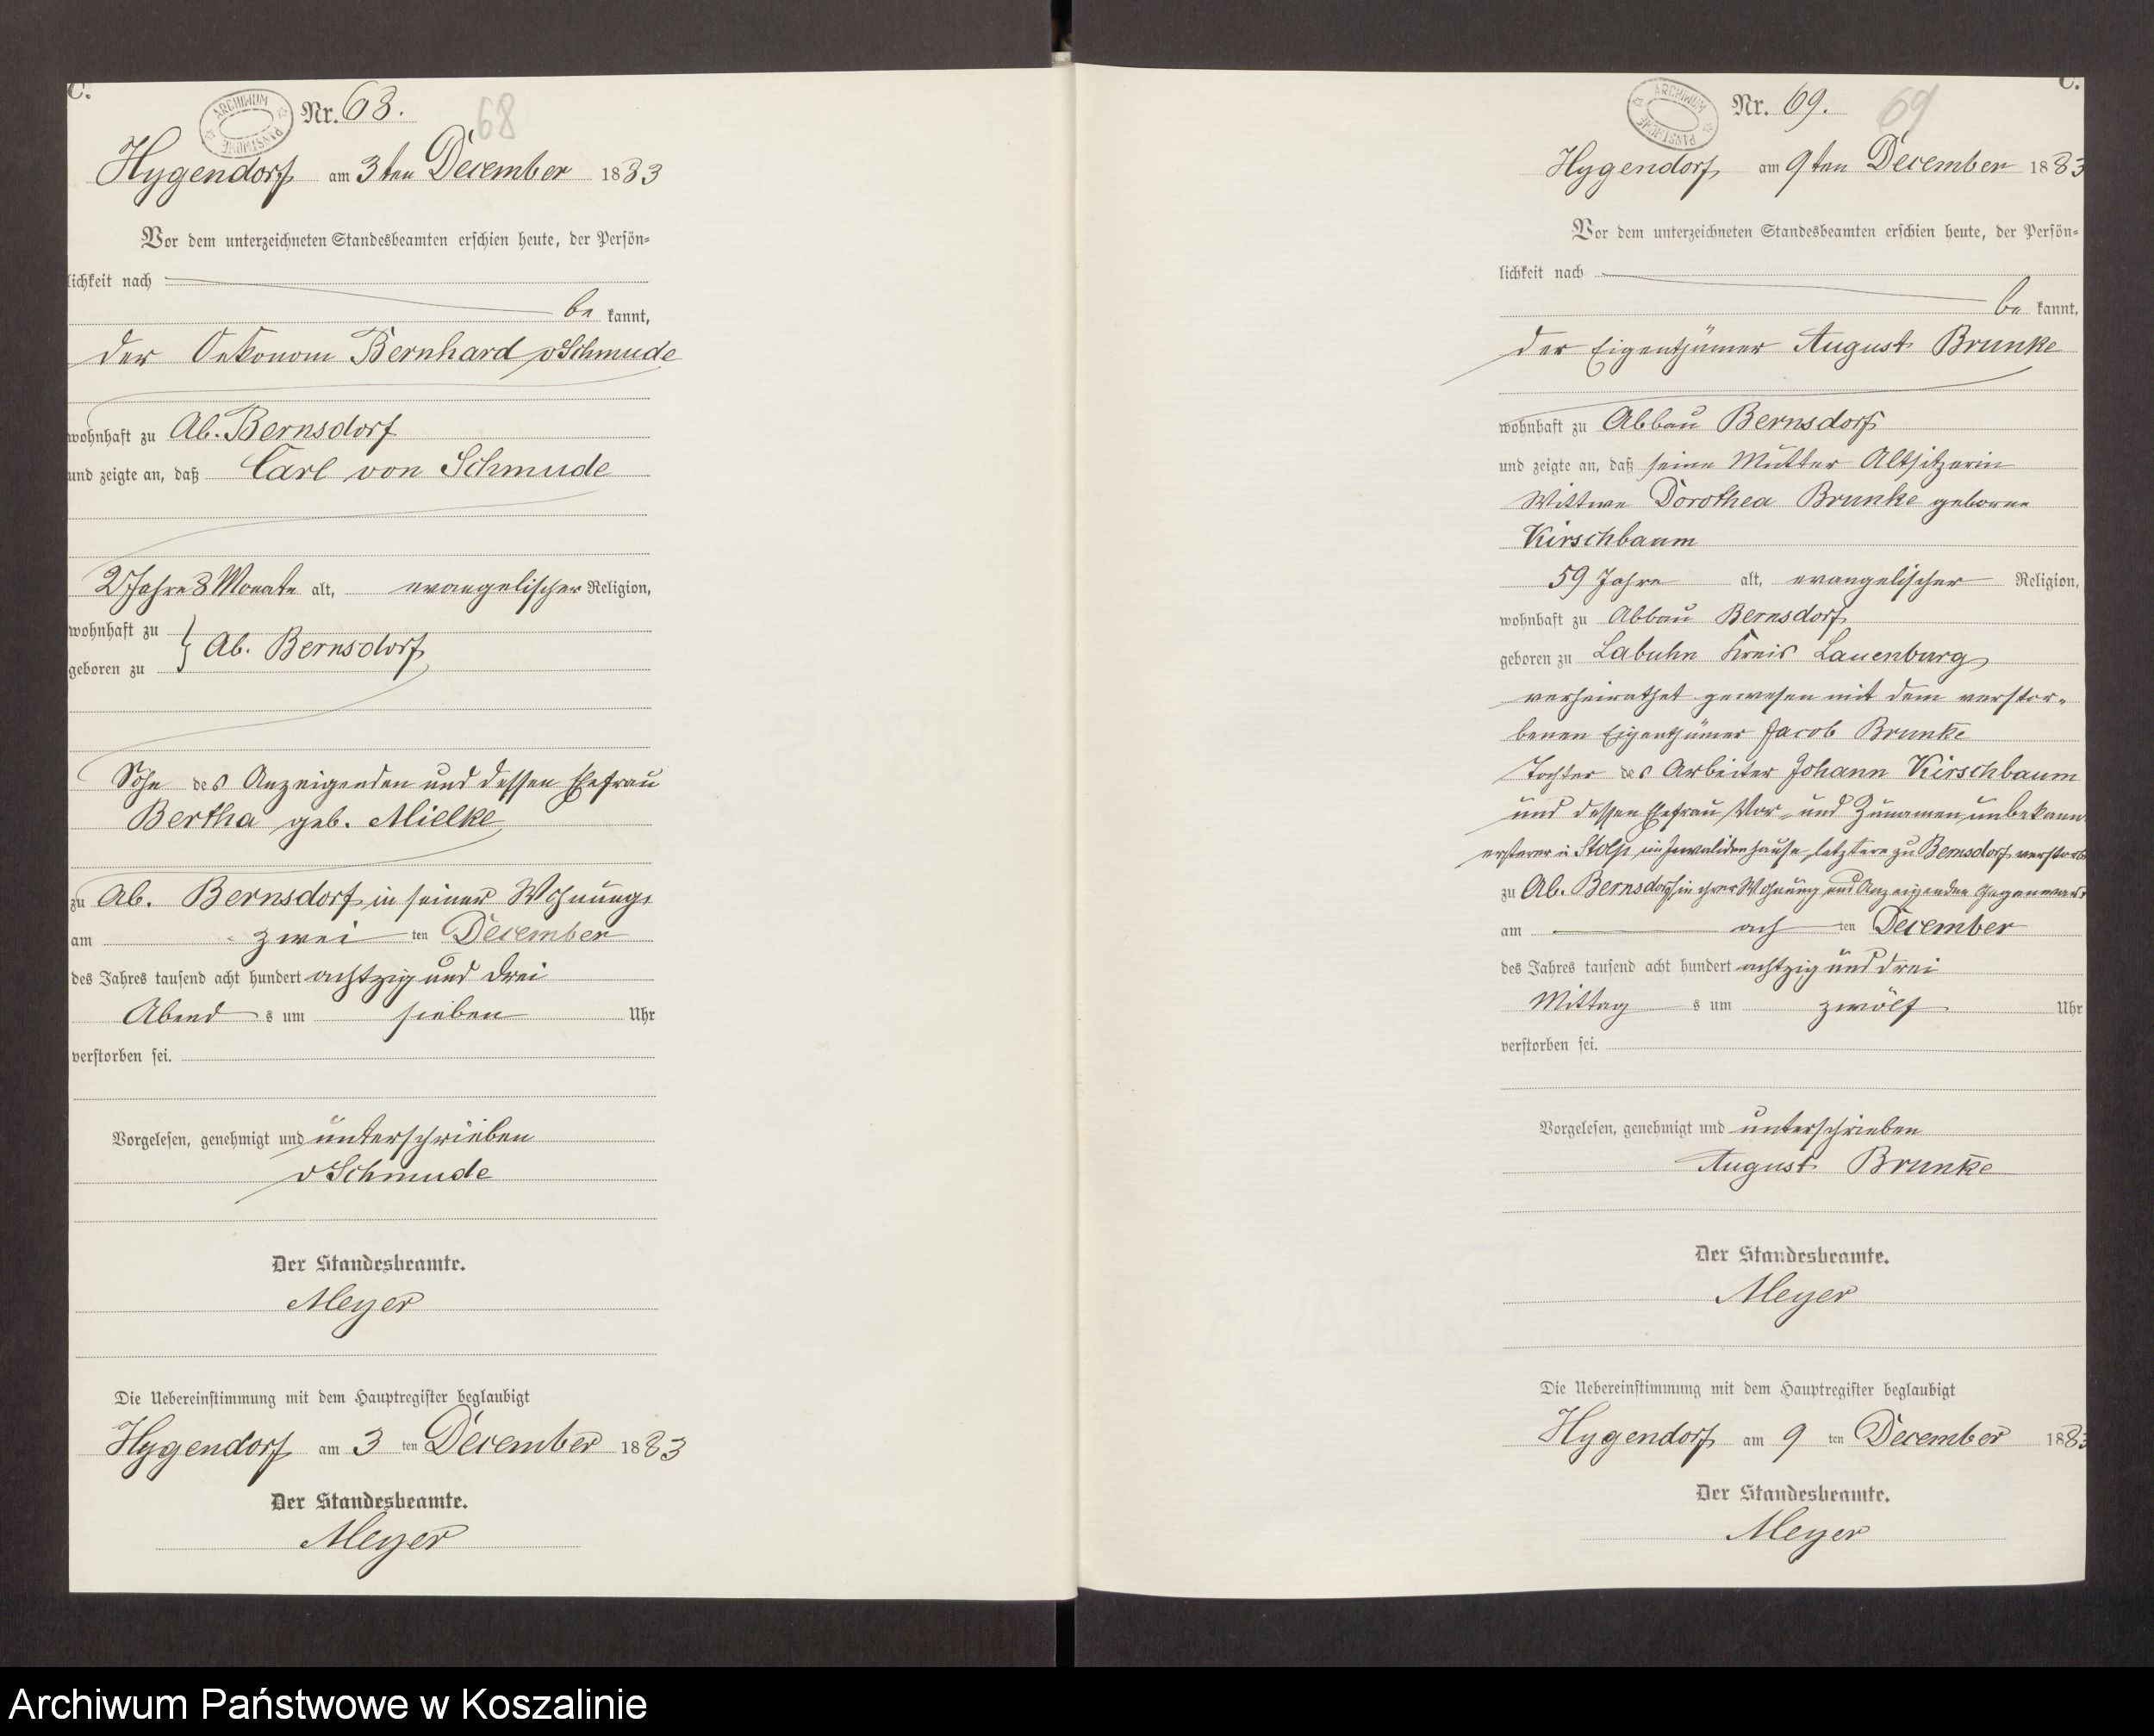 C.
ARCHIWUM PAŃSTWOWE
Nr. 68.
68
Hygendorf am 3ten December 1883
Vor dem unterzeichneten Standesbeamten erschien heute, der Persön-
lichkeit nach
be kannt,
der Oekonom Bernhard v Schmude
wohnhaft zu Ab. Bernsdorf
und zeigte an, daß Carl von Schmude
2 Jahre 8 Monate alt, evangelischer Religion,
wohnhaft zu
} Ab. Bernsdorf
geboren zu
Sohn des Anzeigenden und dessen Ehefrau
Bertha geb. Mielke
zu Ab. Bernsdorf in seiner Wohnung
am zwei ten December
des Jahres tausend acht hundert achtzig und drei
Abend s um sieben Uhr
verstorben sei.
Vorgelesen, genehmigt und unterschrieben
v Schmude
Der Standesbeamte.
Meyer
Die Uebereinstimmung mit dem Hauptregister beglaubigt
Hygendorf am 3 ten December 1883
Der Standesbeamte.
Meyer
C.
ARCHIWUM PAŃSTWOWE
Nr. 69.
69
Hygendorf am 9ten December 1883
Vor dem unterzeichneten Standesbeamten erschien heute, der Persön-
lichkeit nach
be kannt,
der Eigenthümer August Brunke
wohnhaft zu Abbau Bernsdorf
und zeigte an, daß seine Mutter Altsitzerin
Wittwe Dorothea Brunke geborne
Kirschbaum
59 Jahre alt, evangelischer Religion,
wohnhaft zu Abbau Bernsdorf
geboren zu Labuhn Kreis Lauenburg
verheirathet gewesen mit dem verstor-
benen Eigenthümer Jacob Brunke
Tochter des Arbeiter Johann Kirschbaum
und dessen Ehefrau Vor- und Zunamen unbekann
ersterer in Stolp im Invalidenhause, letztere zu Bernsdorf verstorb
zu Ab. Bernsdorf in ihrer Wohnung und Anzeigenden Gegenwart
am ach ten December
des Jahres tausend acht hundert achtzig und drei
Mittag s um zwölf Uhr
verstorben sei.
Vorgelesen, genehmigt und unterschrieben
August Brunke
Der Standesbeamte.
Meyer
Die Uebereinstimmung mit dem Hauptregister beglaubigt
Hygendorf am 9 ten December 1883
Der Standesbeamte.
Meyer
Archiwum Państwowe w Koszalinie